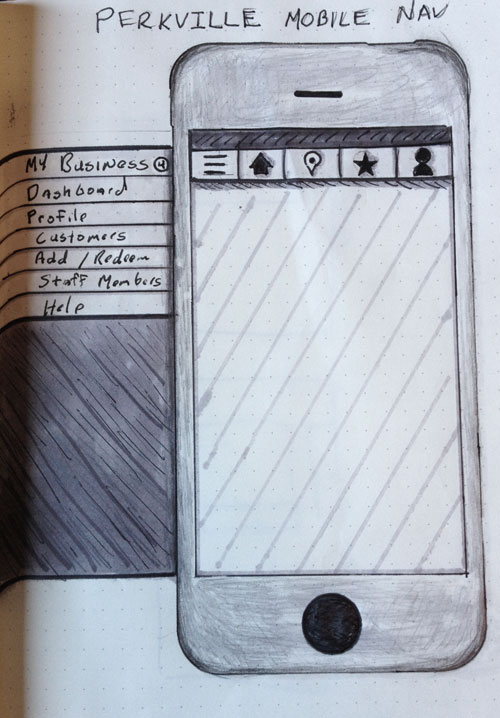 PERKVILLE MOBILE NAV
My Business 4
Dashboard
Profile
Customers
Add / Redeem
Staff Members
Help